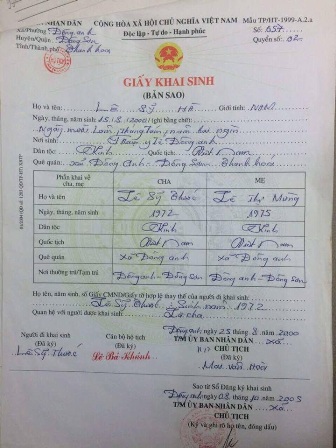 ỦY BAN NHÂN DÂN CỘNG HÒA XÃ HỘI CHỦ NGHĨA VIỆT NAM Mẫu TP/HT-1999-A.2.a
Xã/Phường Đông anh Độc lập - Tự do - Hạnh phúc Số: 057
Huyện/Quận: Đông Sơn Quyển số: 02
Tỉnh/Thành phố: Thanh hóa
GIẤY KHAI SINH
(BẢN SAO)
Họ và tên: Lê Sỹ Giới tính: Nam
Ngày, tháng, năm sinh: 15.8.2000 (ghi bằng chữ):
Ngày mười lăm, tháng tám, năm hai nghìn
Nơi sinh: Trạm y tế Đông anh
Dân tộc: Kinh Quốc tịch: Việt Nam
Quê quán: xã Đông anh - Đông Sơn - Thanh hóa
Phần khai về cha, mẹ CHA MẸ
Họ và tên Lê Sỹ Lê Thị
Ngày, tháng, năm sinh 1972 1975
Dân tộc Kinh Kinh
Quốc tịch Việt Nam Việt Nam
Quê quán xã Đông anh xã Đông anh
Nơi thường trú/Tạm trú Đông anh - Đông Sơn Đông anh - Đông Sơn
Họ tên, năm sinh, số Giấy CMND/Giấy tờ hợp lệ thay thế của người đi khai sinh:
Lê Sỹ Sinh năm 1972
Quan hệ với người được khai sinh: Là cha
Đông anh, ngày 25 tháng 8 năm 2000
Người đi khai sinh Cán bộ hộ tịch T/M ỦY BAN NHÂN DÂN xã
(Đã ký) (Đã ký) CHỦ TỊCH
(Đã ký)
Lê Sỹ Lê Bá Khánh
Sao từ Sổ Đăng ký khai sinh
Đông anh, ngày 03 tháng 10 năm 2005
T/M ỦY BAN NHÂN DÂN xã
CHỦ TỊCH
(Ký và ghi rõ họ tên, đóng dấu)